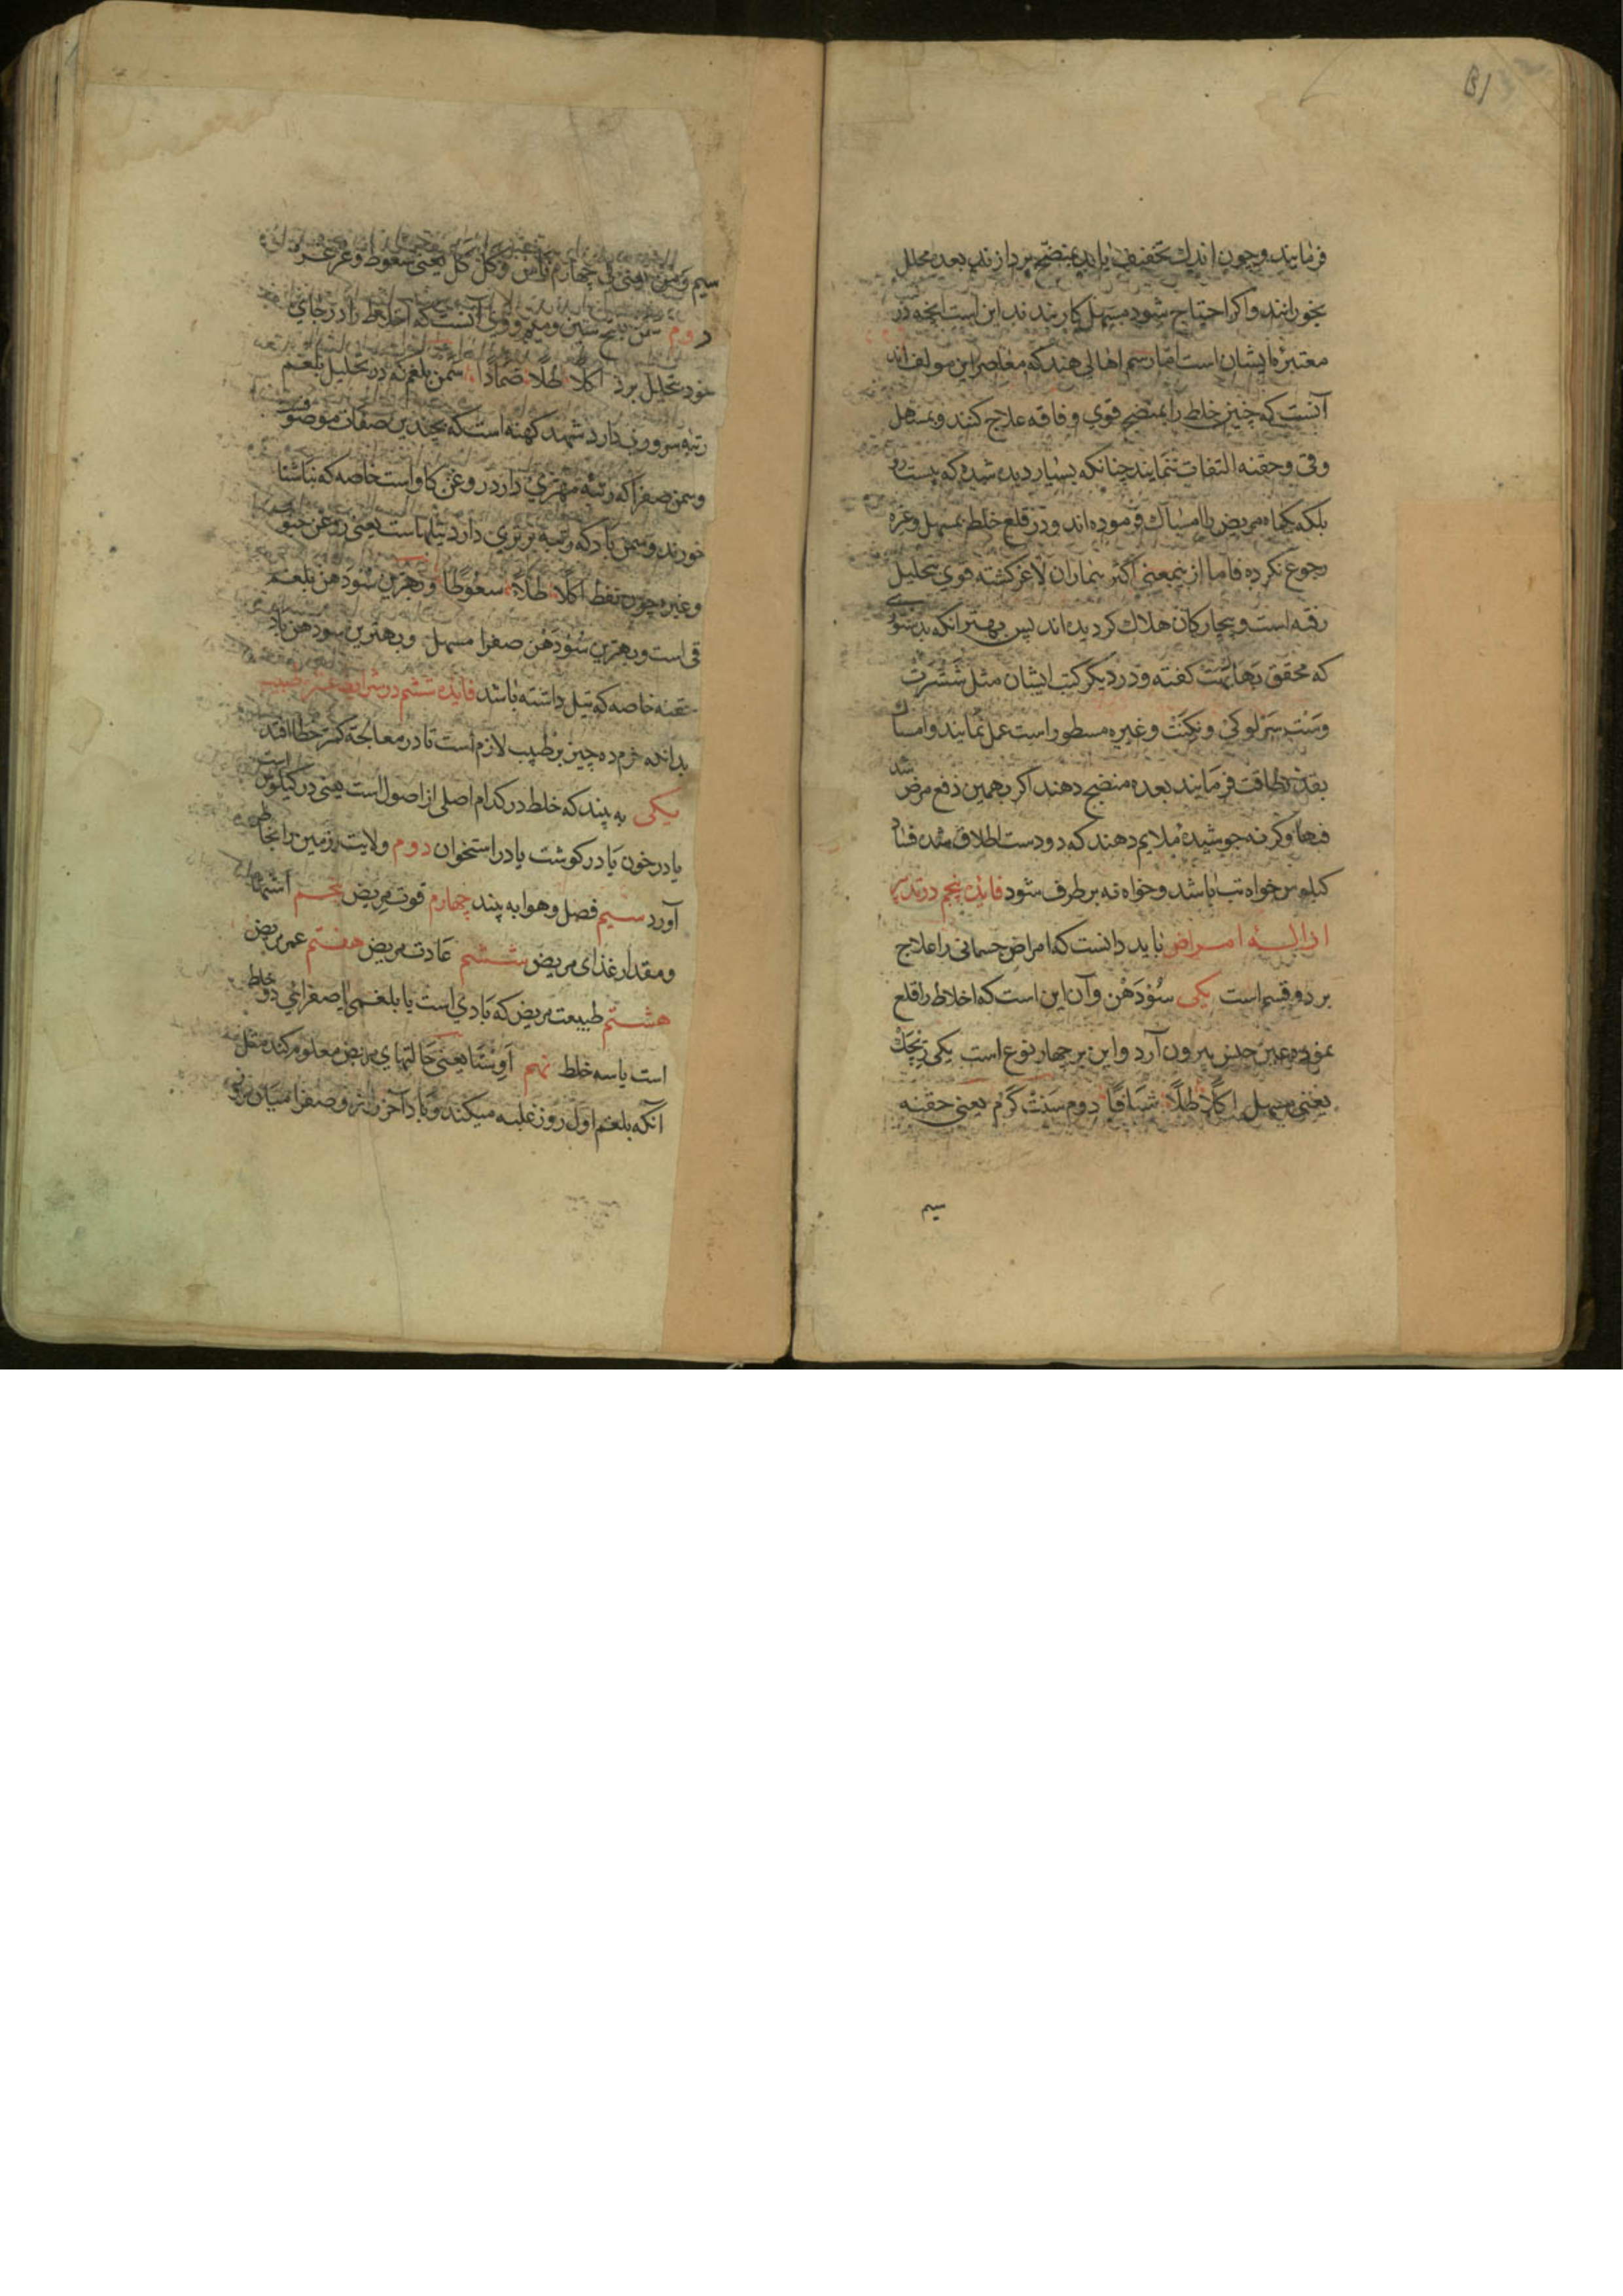 فرمایند وچون اندك تخفیف یابد بمنضج پردازند بعده محلل
بخورانند واکر احتیاج شود مسهل کار بندند این است انچه در
معتبرهٔ ایشان است امّا رسم اهالی هند که معاصر این مولف اند
آنست که چنین خلط را بمنضج قوی و فاقه علاج کنند و بمسهل
وقی وحقنه التفات ننمایند چنانکه بسیار دیده شده که بیست روز
بلکه یکماه مریض را امساك فرموده اند و در قلع خلط بمسهل وغیره
رجوع نکرده فاما از ینمعنی اکثر بیماران لاغر کشته قوی بتحلیل
رفته است و بیچارکان هلاك کردیده اند پس بهتر آنکه بدستوری
که محقق بهابهت کفته و در دیکر کتب ایشان مثل سسرت
وغیره مسطور است عمل نمایند وامساك
بقدر طاقت فرمایند بعده منضج دهند اکر بهمین دفع مرض شد
فبها وکرنه جوشیده ملایم دهند که دو دست اطلاق شده فساد
کیلوس خواه تب باشد وخواه نه برطرف شود فایده پنجم در تدبیر
ازالهٔ امراض باید دانست که امراض جسمانی را علاج
بر دو قسم است یکی سُوْدَهْن وآن این است که اخلاط را قلع
نموده بیرون آرد واین بر چهار نوع است یکی
یعنی مسهل اکلاً طلاً شیافاً دوم یعنی حقنه
سیم
سیم وَمَن یعنی قی چهارم یعنی سعوط وغرغره
دوم سمن بفتح سین ومیم و وی آنست که اخلاط را در جای
خود تحلیل برد اکلاً طلاً ضماداً سمن بلغم که در تحلیل بلغم
رتبه سروری دارد شهد کهنه است که بچندین صفات موصوف
وسمن صفرا که رتبه مهتری دارد روغن کاو است خاصه که بناشتا
خورند وسمن باد که رتبه برتری دارد تیلها است یعنی روغن حبوب
وغیره چون نفط اکلاً طلاً سعوطاً و بهترین سُوْدَهن بلغم
قی است و بهترین سُوْدَهن صفرا مسهل و بهترین سودهن باد
حقنه خاصه که تیل داشته باشد فایده ششم در شرایط
بدانکه ده چیز بر طبیب لازم است تا در معالجه کمتر خطا افتد
یکی به بیند که خلط در کدام اصلی از اصول است یعنی در کیلوس است
یا در خون یا در کوشت یا در استخوان دوم ولایت وزمین را بخاطر
آورد سیم فصل وهوا به بیند چهارم قوت مریض پنجم اشتهای
ومقدار غذای مریض ششم عادت مریض هفتم عمر مریض
هشتم طبیعت مریض که بادی است یا بلغمی یا صفرائی دو خلط
است یا سه خلط نهم اَوِستَا یعنی حالتهای مریض معلوم کند مثل
آنکه بلغم اول روز غلبه میکند و باد آخر روز و صفرا میان روز